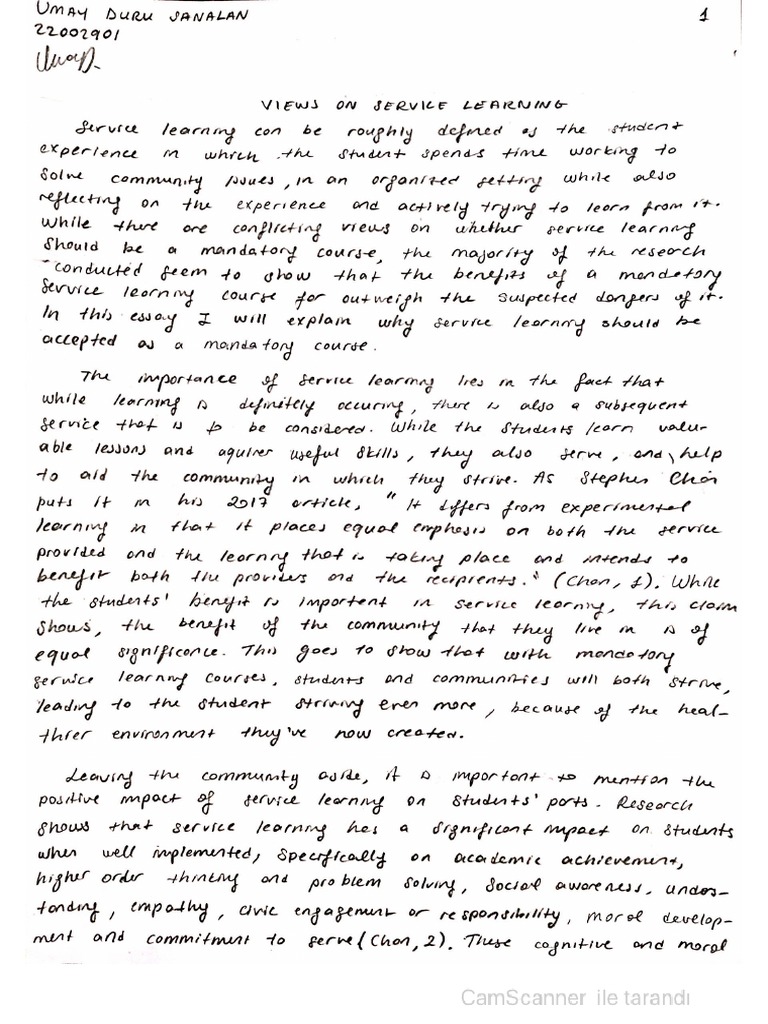 UMAY DURU SANALAN
1
22002901
VIEWS ON SERVICE LEARNING
Service learning can be roughly defined as the student
experience in which the student spends time working to
solve community issues, in an organized setting while also
reflecting on the experience and actively trying to learn from it.
While there are conflicting views on whether service learning
should be a mandatory course, the majority of the research
conducted seem to show that the benefits of a mandatory
service learning course far outweigh the suspected dangers of it.
In this essay I will explain why service learning should be
accepted as a mandatory course.
The importance of service learning lies in the fact that
while learning is definitely occuring, there is also a subsequent
service that is to be considered. While the students learn valu-
able lessons and aquirer useful skills, they also serve, and help
to aid the community in which they strive. As Stephen Chan
puts it in his 2017 article, "It differs from experimental
learning in that it places equal emphasis on both the service
provided and the learning that is taking place and intends to
benefit both the providers and the recipients." (Chan, 1). While
the students' benefit is important in service learning, this claim
shows, the benefit of the community that they live in is of
equal significance. This goes to show that with mandatory
service learning courses, students and communities will both strive,
leading to the student striving even more, because of the heal-
thier environment they've now created.
Leaving the community aside, it is important to mention the
positive impact of service learning on students' parts. Research
shows that service learning has a significant impact on students
when well implemented, specifically on academic achievement,
higher order thinking and problem solving, social awareness, unders-
tanding, empathy, civic engagement or responsibility, moral develop-
ment and commitment to serve (Chan, 2). These cognitive and moral
CamScanner ile tarandı